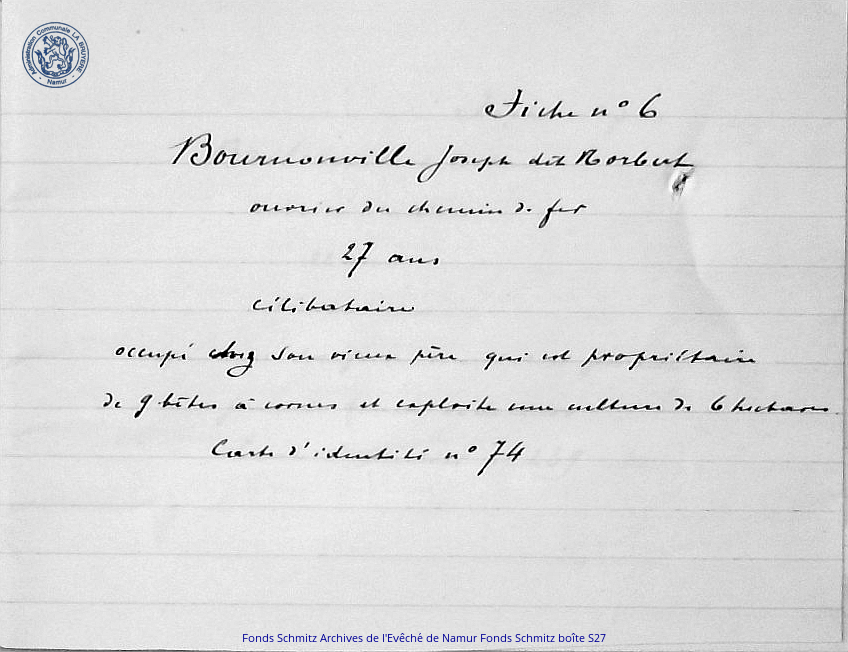 Administration Communale LA BRUYERE
Namur
Fiche n° 6
Bournonville Joseph dit Norbert
ouvrier du chemin de fer
27 ans
célibataire
occupé chez son vieux père qui est propriétaire
de 9 bêtes à cornes et exploite une culture de 6 hectares
Carte d'identité n° 74
Fonds Schmitz Archives de l'Evêché de Namur Fonds Schmitz boîte S27